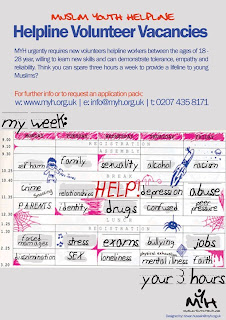 MUSLIM YOUTH HELPLINE
Helpline Volunteer Vacancies
MYH urgently requires new volunteers helpline workers between the ages of 18 -
28 year, willing to learn new skills and can demonstrate tolerance, empathy and
reliability. Think you can spare three hours a week to provide a lifeline to young
Muslims?
For further info or to request an application pack:
w: www.myh.org.uk | e: info@myh.org.uk | t: 0207 435 8171
my week:
REGISTRATION
ASSEMBLY
self harm family sexuality alcohol racism
BREAK
crime relationships HELP! depression abuse
PARENTS identity drugs confused peer pressure
LUNCH
REGISTRATION
forced marriages stress exams bullying jobs
discrimination SEX loneliness mental illness faith
your 3 hours
MYH
MUSLIM YOUTH HELPLINE